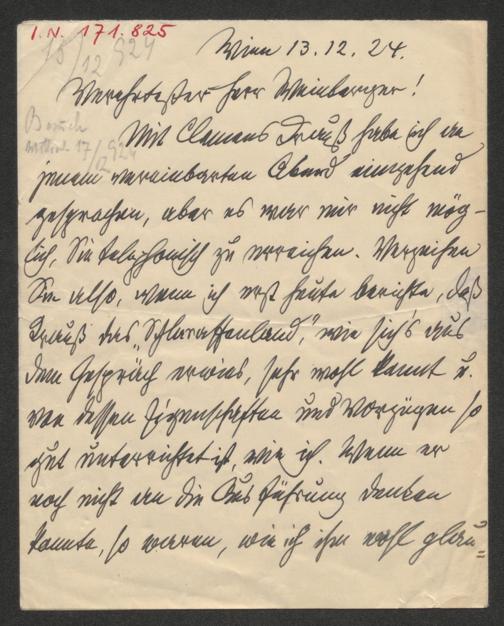 I.N. 171.825
15/12 924
Wien 13.12.24.
Verehrtester Herr Weinberger!
Besuch
Mittwoch 17/12 924
Mit Clemens Krauß habe ich an
jenem vereinbarten Abend eingehend
gesprochen, aber es war mir nicht mög-
lich, Sie telephonisch zu erreichen. Verzeihen
Sie also, wenn ich erst heute berichte, daß
Krauß das „Schlaraffenland“, wie sich's aus
dem Gespräch erwies, sehr wohl kennt u.
von dessen Eigenschaften und Vorzügen so
gut unterrichtet ist, wie ich. Wenn er
noch nicht an die Ausführung denken
konnte, so waren, wie ich ihm wohl glau=